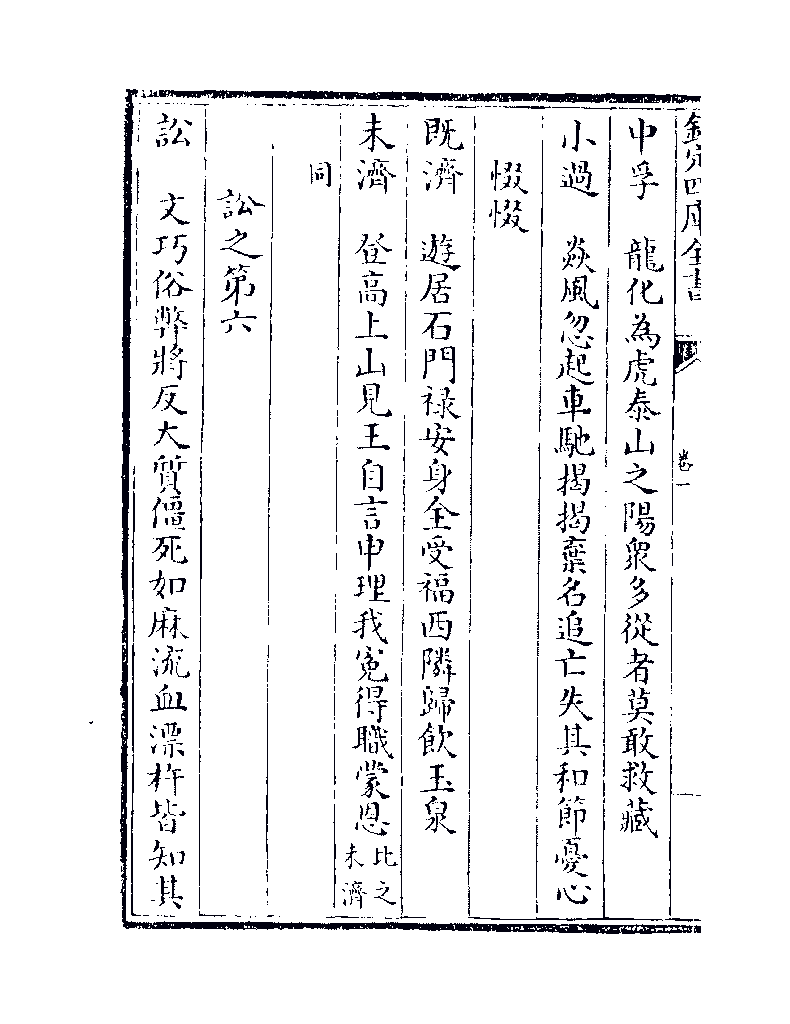 欽定四庫全書
卷一
中孚　龍化為虎泰山之陽衆多從者莫敢救藏
小過　焱風忽起車馳揭揭棄名追亡失其和節憂心
惙惙
既濟　遊居石門禄安身全受福西隣歸飲玉泉
未濟　登高上山見王自言申理我寃得職蒙恩比之未濟
同
訟之第六
訟　文巧俗弊將反大質僵死如麻流血漂杵皆知其